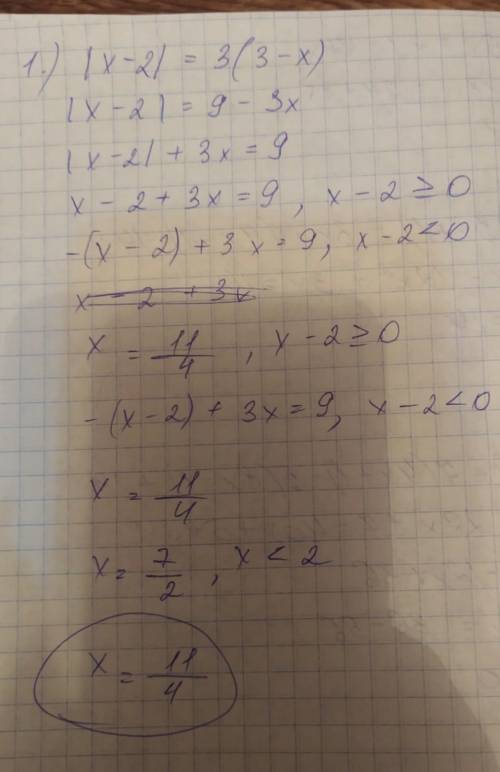 1.) |x-2| = 3(3-x)
|x-2| = 9 - 3x
|x-2| + 3x = 9
x - 2 + 3x = 9, x - 2 ≥ 0
-(x-2) + 3x = 9, x - 2 < 0
x - 2 + 3x
x = 11/4, x - 2 ≥ 0
-(x-2) + 3x = 9, x - 2 < 0
x = 11/4
x = 7/2, x < 2
x = 11/4